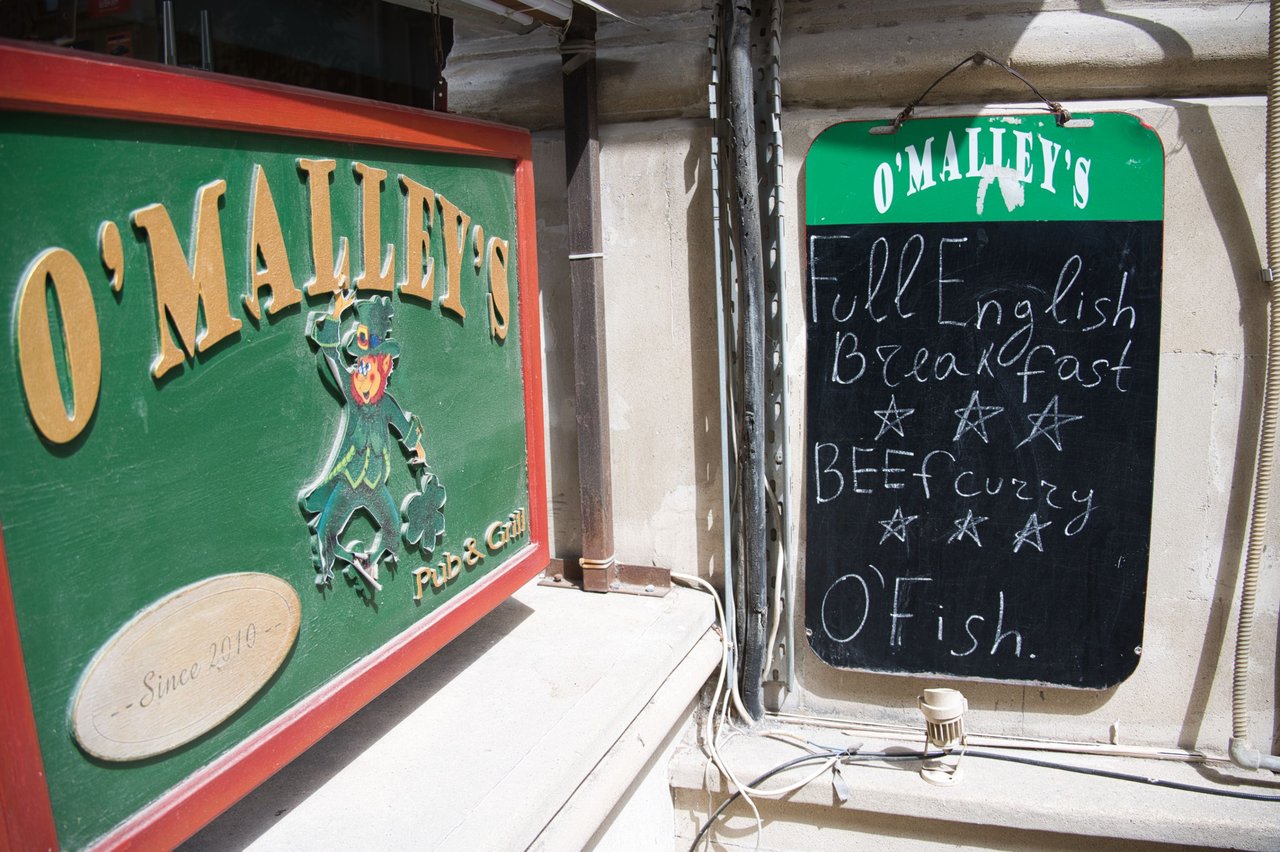 O'MALLEY'S
Pub & Grill
--Since 2010--
O'MALLEY'S
Full English
Breakfast
BEEf curry
O'Fish.